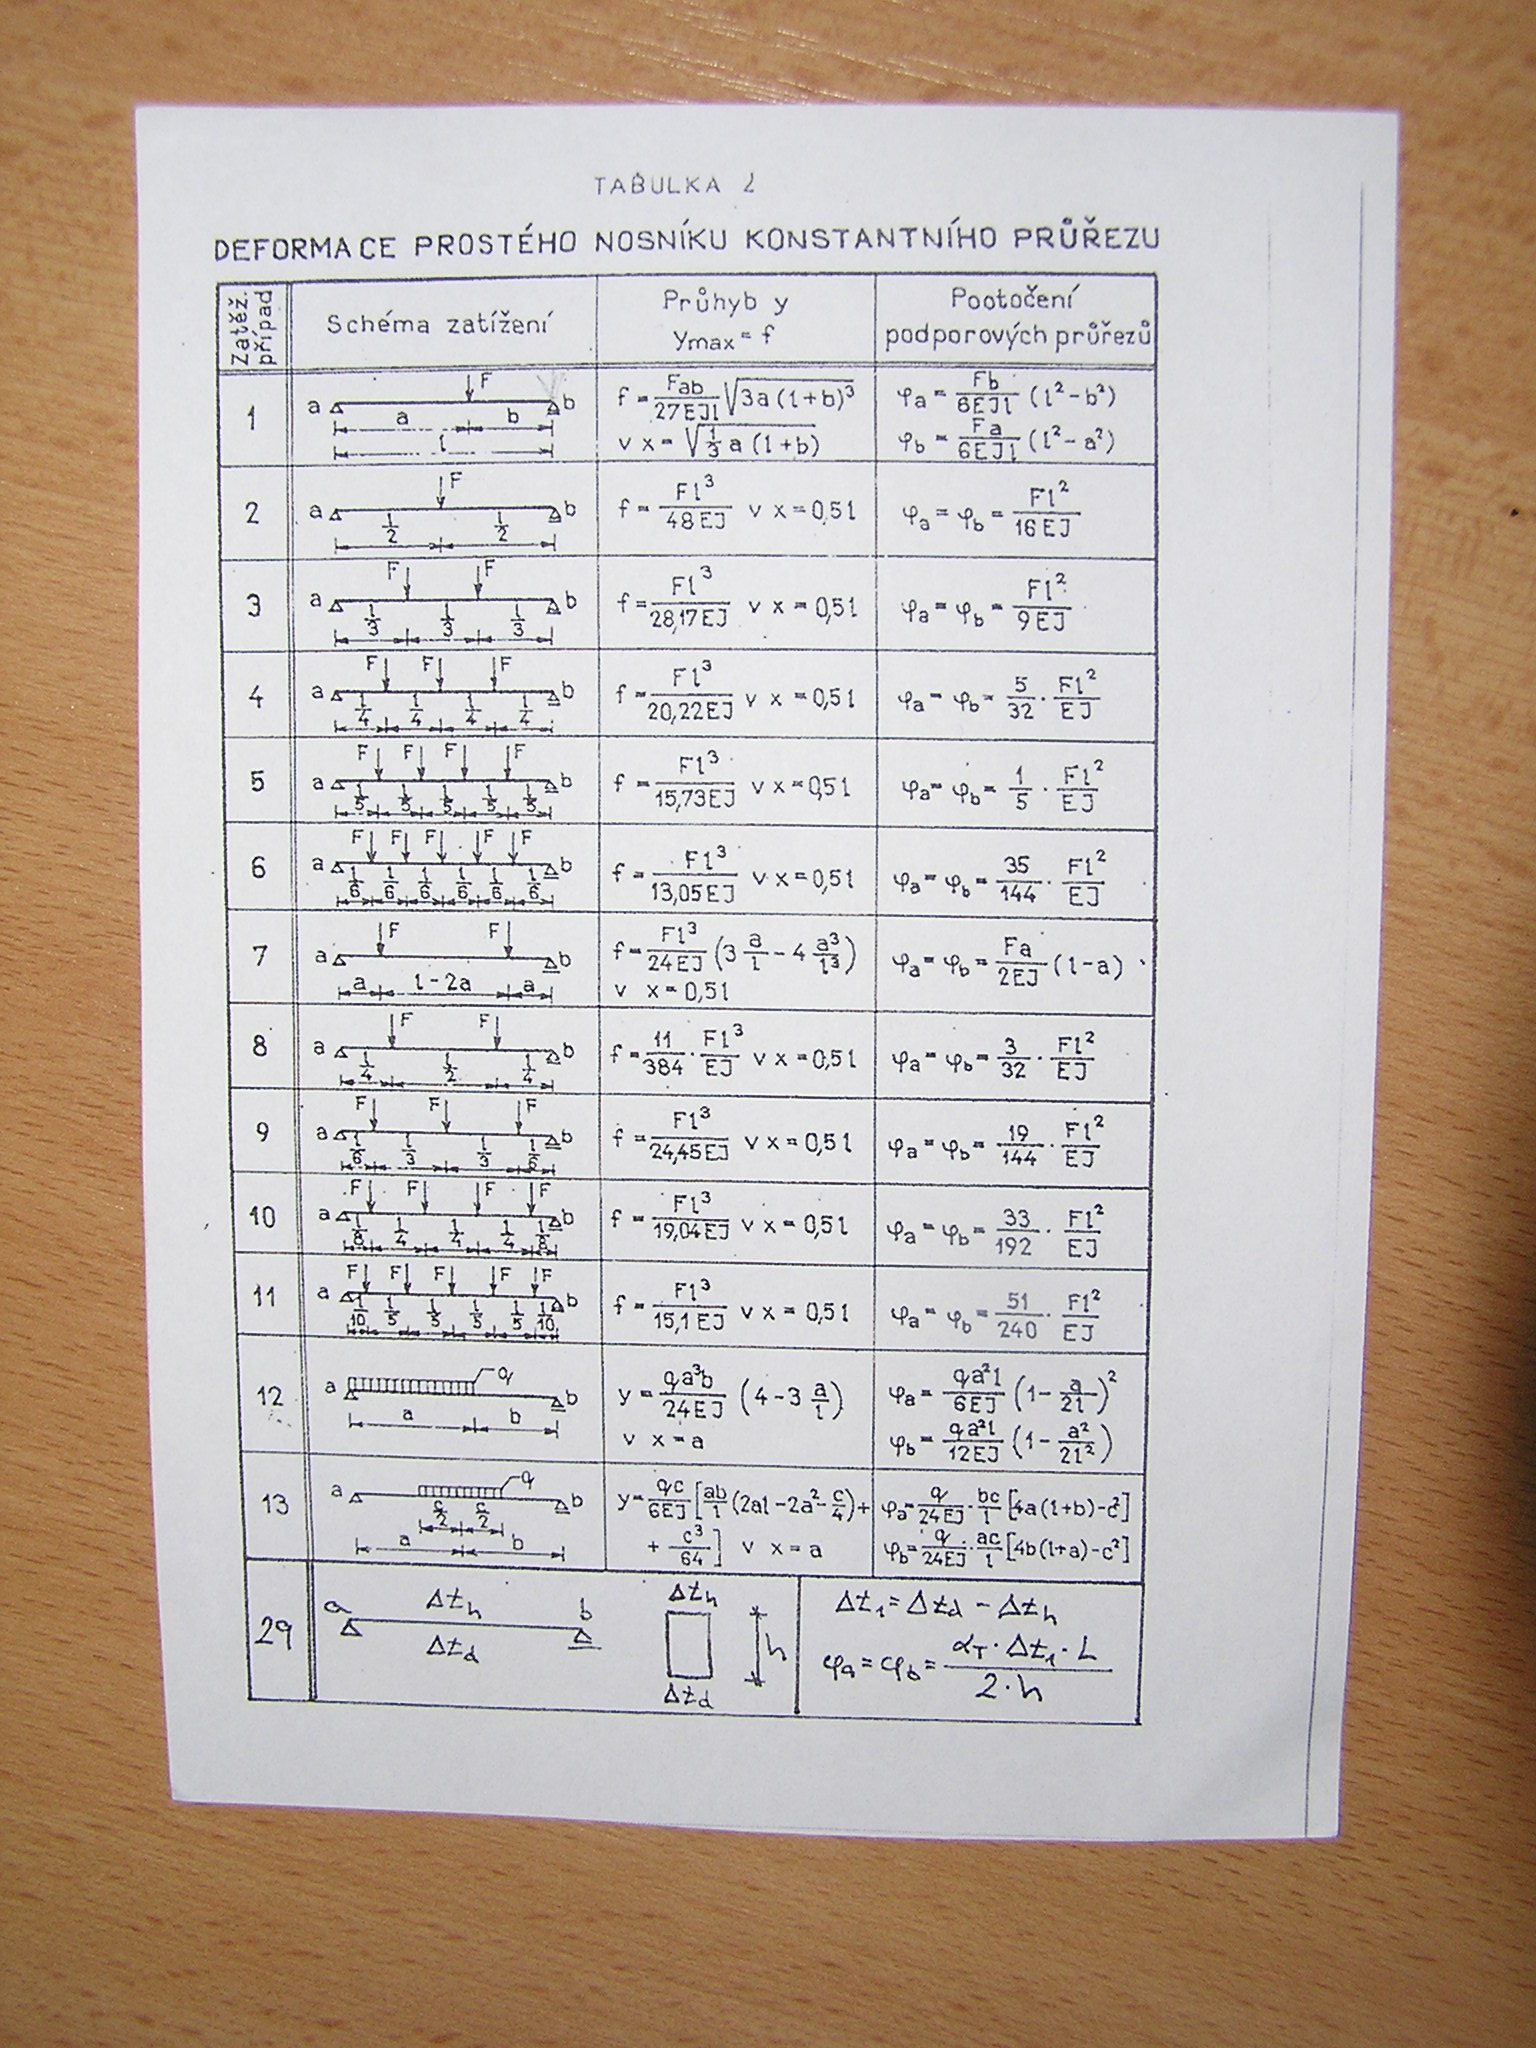 TABULKA 2
DEFORMACE PROSTÉHO NOSNÍKU KONSTANTNÍHO PRŮŘEZU
Zatěž. případ
Schéma zatížení
Průhyb y
ymax = f
Pootočení
podporových průřezů
1
F
a b
a b
l
f = Fab/27EJl √3a(l+b)³
v x = √1/3 a (l+b)
φa = Fb/6EJl (l²-b²)
φb = Fa/6EJl (l²-a²)
2
F
a b
l/2 l/2
f = Fl³/48EJ v x = 0,5l
φa = φb = Fl²/16EJ
3
F F
a b
l/3 l/3 l/3
f = Fl³/28,17EJ v x = 0,5l
φa = φb = Fl²/9EJ
4
F F F
a b
l/4 l/4 l/4 l/4
f = Fl³/20,22EJ v x = 0,5l
φa = φb = 5/32 · Fl²/EJ
5
F F F F
a b
l/5 l/5 l/5 l/5 l/5
f = Fl³/15,73EJ v x = 0,5l
φa = φb = 1/5 · Fl²/EJ
6
F F F F F
a b
l/6 l/6 l/6 l/6 l/6 l/6
f = Fl³/13,05EJ v x = 0,5l
φa = φb = 35/144 · Fl²/EJ
7
F F
a b
a l-2a a
f = Fl³/24EJ (3 a/l - 4 a³/l³)
v x = 0,5l
φa = φb = Fa/2EJ (l-a)
8
F F
a b
l/4 l/2 l/4
f = 11/384 · Fl³/EJ v x = 0,5l
φa = φb = 3/32 · Fl²/EJ
9
F F F
a b
l/6 l/3 l/3 l/6
f = Fl³/24,45EJ v x = 0,5l
φa = φb = 19/144 · Fl²/EJ
10
F F F F
a b
l/8 l/4 l/4 l/4 l/8
f = Fl³/19,04EJ v x = 0,5l
φa = φb = 33/192 · Fl²/EJ
11
F F F F F
a b
l/10 l/5 l/5 l/5 l/5 l/10
f = Fl³/15,1EJ v x = 0,5l
φa = φb = 51/240 · Fl²/EJ
12
q
a b
a b
y = qa³b/24EJ (4-3 a/l)
v x = a
φa = qa²l/6EJ (1 - a/2l)²
φb = qa²l/12EJ (1 - a²/2l²)
13
q
a b
c/2 c/2
a b
y = qc/6EJ [ab/l (2al-2a²-c/4)+
+ c³/64] v x = a
φa = q/24EJ · bc/l [4a(l+b)-c²]
φb = q/24EJ · ac/l [4b(l+a)-c²]
29
Δth
a b
Δtd
Δth
h
Δtd
Δt1 = Δtd - Δth
φa = φb = αT · Δt1 · L / 2 · h